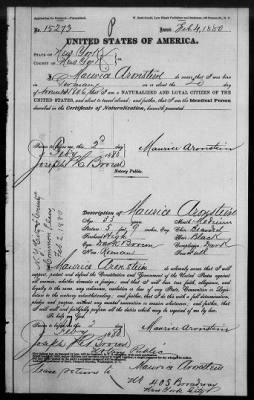 No. 15273
Issued Feb. 4, 1880
UNITED STATES OF AMERICA.
STATE OF New York
COUNTY OF New York
I, Maurice Aronstein do swear that I was born in
Germany on or about the
day of
that I am a NATURALIZED AND LOYAL CITIZEN OF THE
UNITED STATES, and about to travel abroad; and further, that I am the Identical Person
described in the Certificate of Naturalization, herewith presented.
Sworn to before me this 2d
day of Feby 1880
Maurice Aronstein
Joseph
Notary Public
Description of Maurice Aronstein
Age: 33
Mouth: Medium
Stature: 5 feet 9
Chin: Beard
Hair: Black
Eyes: Dark Brown
Complexion: Dark
Nose: Roman
Face: Oval
I, Maurice Aronstein do solemnly swear that I will
support, protect, and defend the Constitution and Government of the United States against all
enemies, whether domestic or foreign; and that I will bear true faith, allegiance, and
loyalty to the same, any ordinance, resolution or law of any State, Convention or Legis-
lature to the contrary notwithstanding; and further, that I do this with a full determination,
pledge and purpose, without any mental reservation or evasion whatsoever; and further, that
I will well and faithfully perform all the duties which may be required of me by law.
So help me God.
Sworn to before me this 2
day of Feby 1880
Maurice Aronstein
Joseph
Notary Public
N. Y. City & County
Common Pleas
Feb 2, 1880
Please return to
Maurice
Aronstein
405 Broadway
New York City